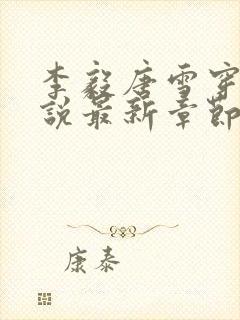 李毅唐雪穿
说最新章节
康泰